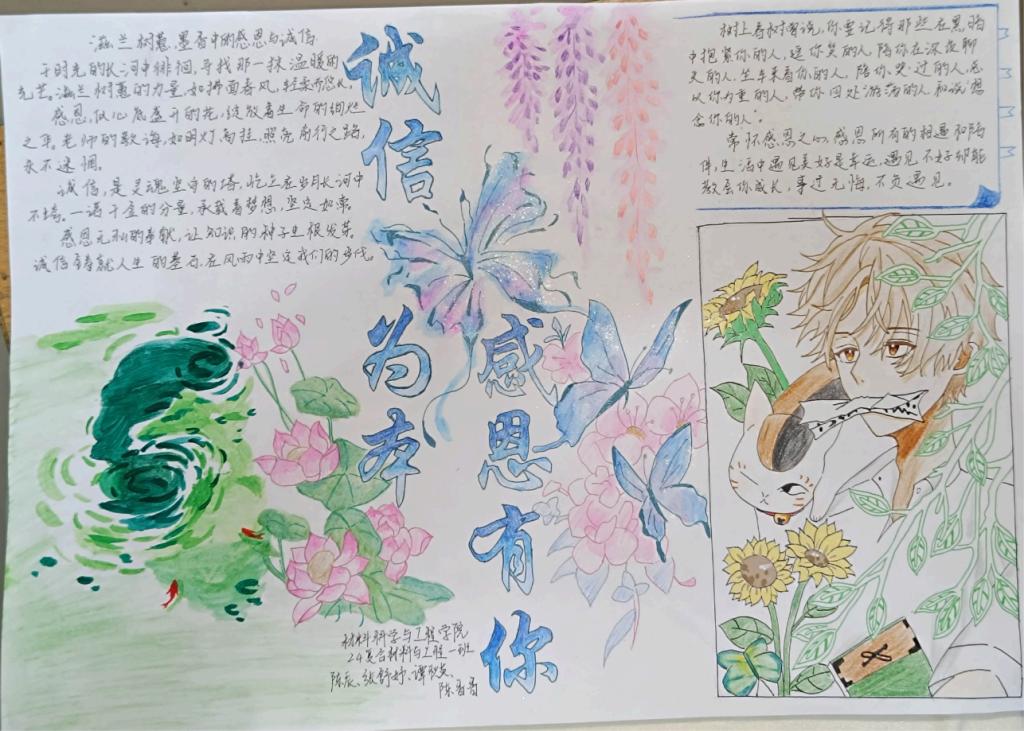 滋兰树蕙，墨香中的感恩与诚信
于时光的长河中徘徊，寻找那一抹温暖的
光芒。滋兰树蕙的力量，如拂面春风，轻柔而悠长。
感恩，似心底盛开的花，绽放着生命的绚烂
之年。老师的教诲，如明灯高挂，照亮前行之路，
永不迷惘。
诚信，是灵魂坚守的塔，屹立在岁月长河中
不塌。一诺千金的分量，承载着梦想，坚定如
感恩无私的奉献，让知识的种子生根发芽。
诚信铸就人生的基石，在风雨中坚定我们的步伐。
诚信为本
感恩有你
村上春树曾说，你要记得那些在黑暗
中抱紧你的人，逗你笑的人，陪你在深夜聊
天的人，坐车来看你的人，陪你哭过的人，总
以你为重的人，带你四处游荡的人和说想
念你的人。
常怀感恩之心，感恩所有的相遇和陪
伴，生活中遇见美好是幸运，遇见不好却能
教会你成长，事过无悔，不负遇见。
材料科学与工程学院
24复合材料与工程一班
陈辰、张舒妤、谭
陈